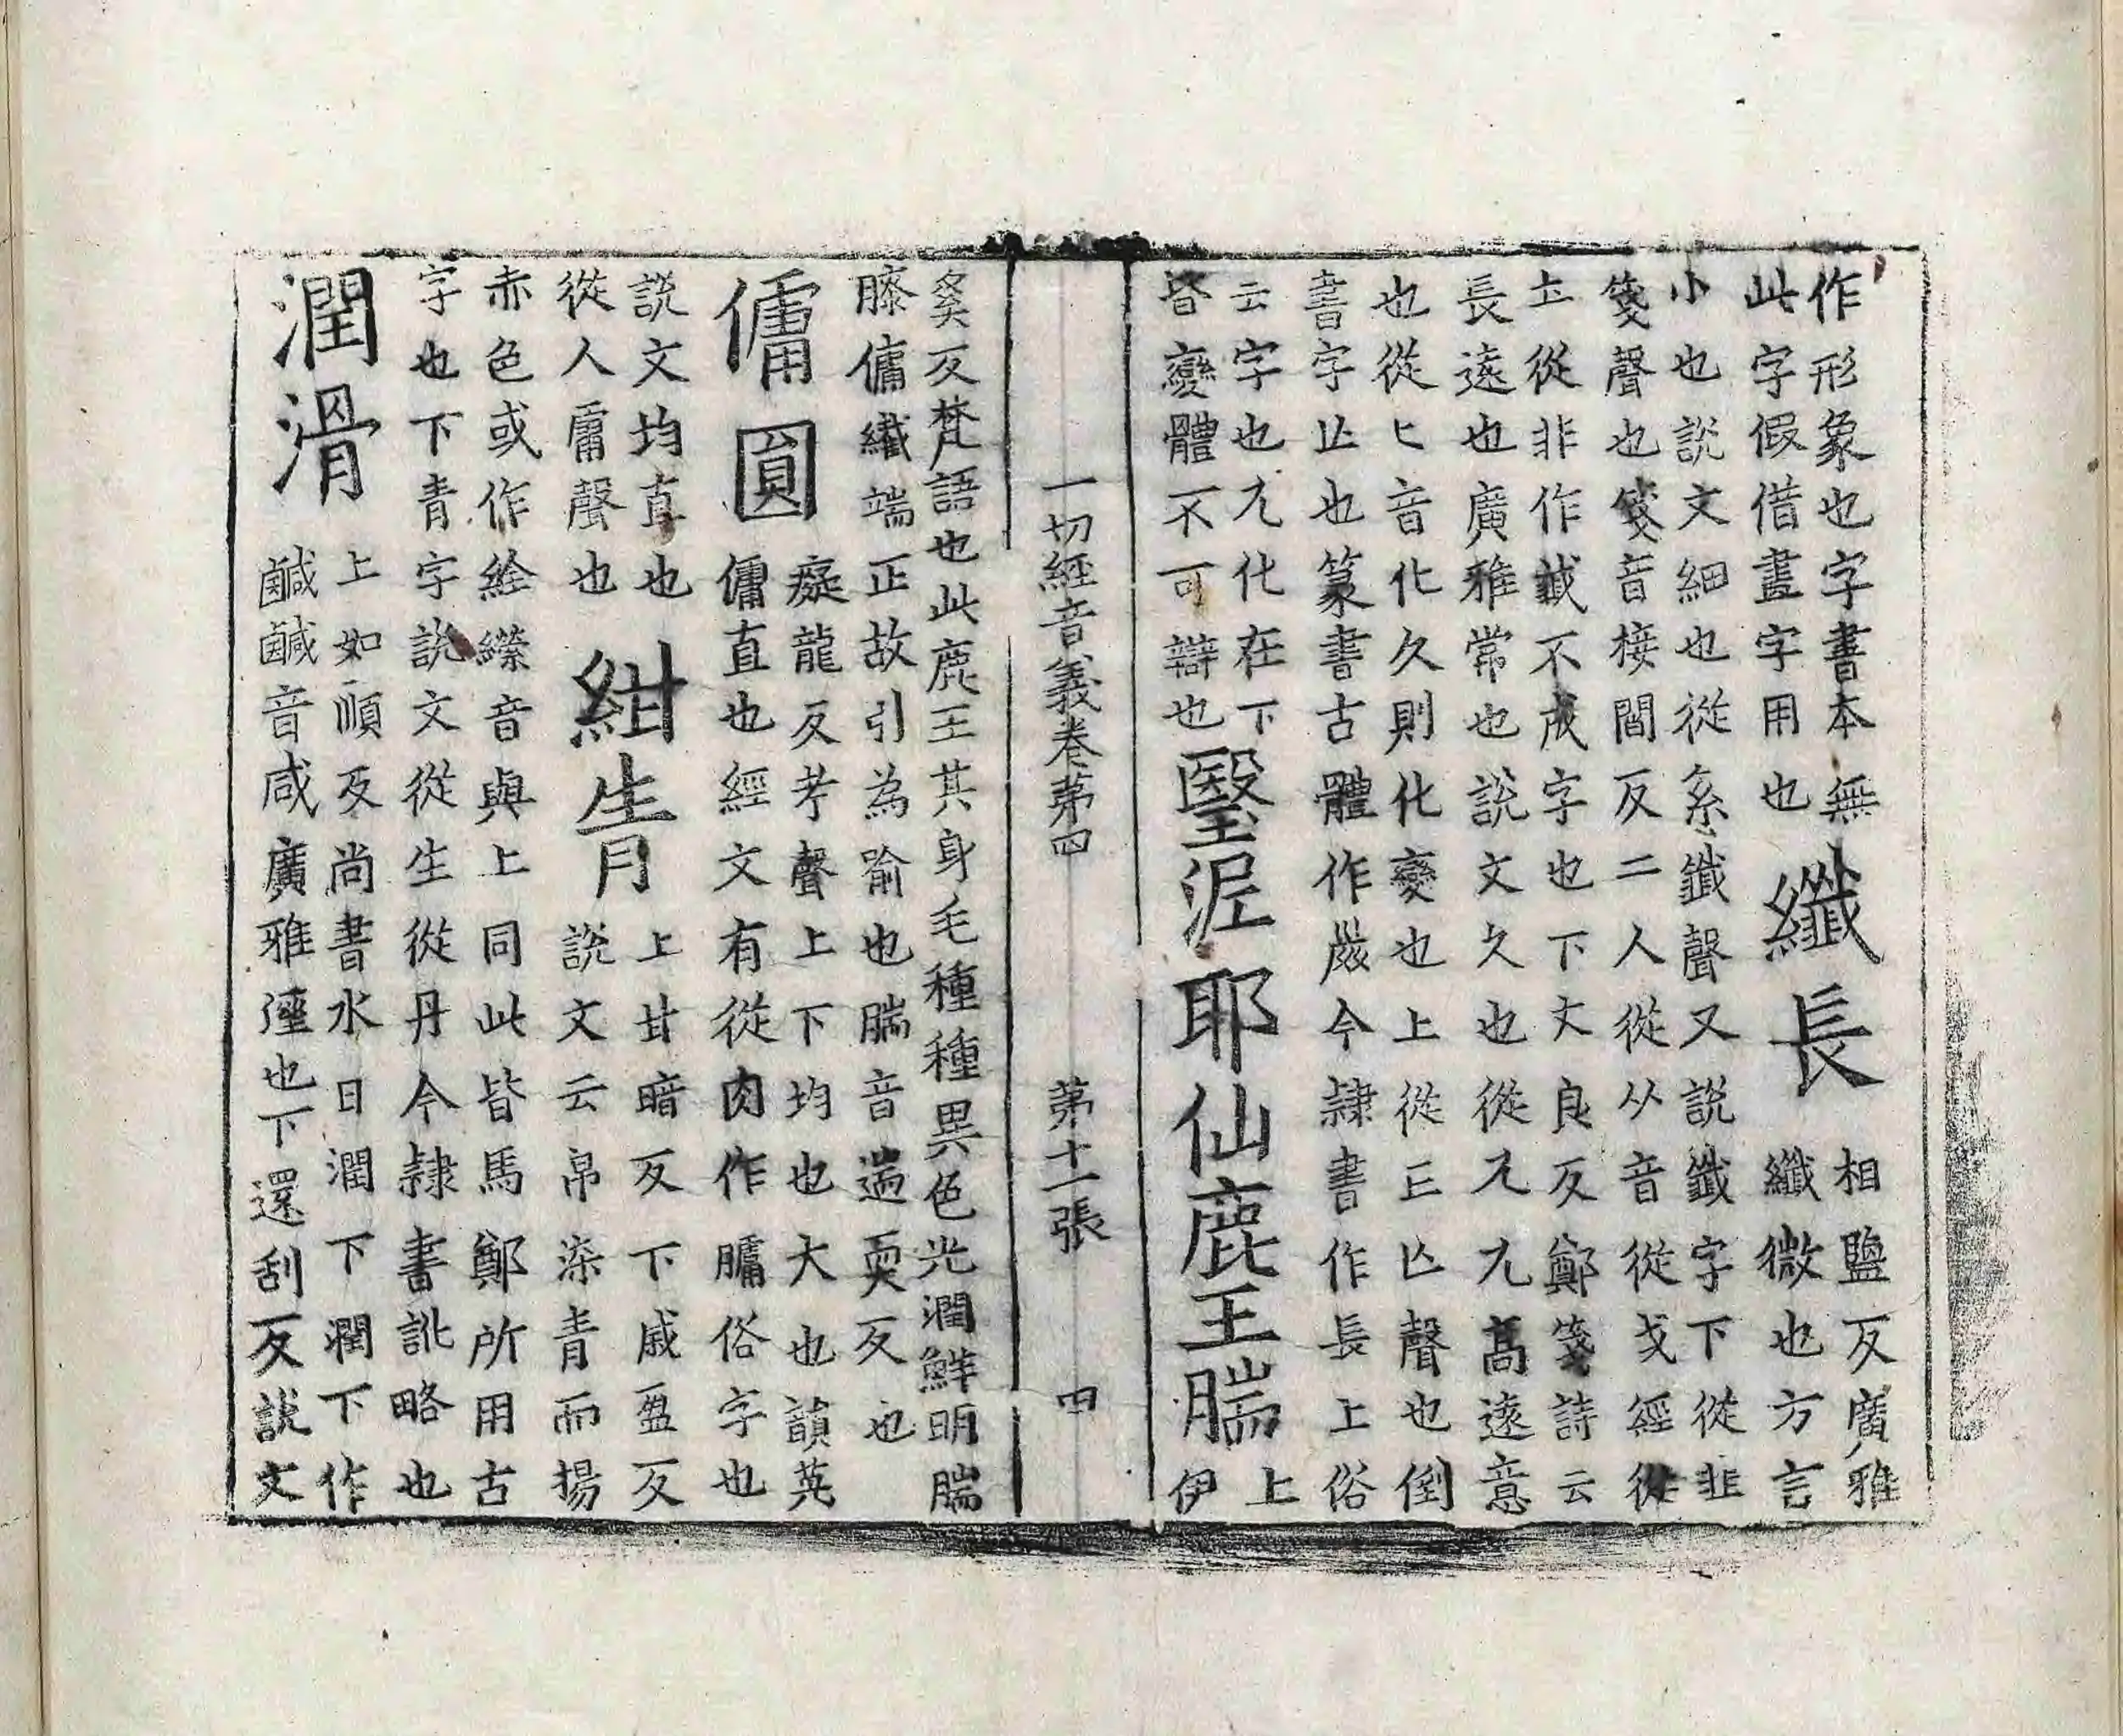 作形象也字書本無
此字假借晝字用也
纖長
相鹽反廣雅
纖微也方言
小也說文細也從糸韱聲又說韱字下從韭
䇳聲也䇳音接閻反二人從从音從戈經從
𡈼從非作䜟不成字也下丈良反鄭箋詩云
長遠也廣雅常也說文久也從兀兀高遠意
也從匕匕音化久則化變也上從𠃑亾聲也倒
書字止也篆書古體作𨱗今隸書作長上俗
云字也兀化在下
昏變體不可辯也
瑿泥耶仙鹿王腨
上
伊
一切經音義卷第四
第十一張
四
奚反梵語也此鹿王其身毛種種異色光潤鮮明腨
膝傭纖端正故引為喻也腨音遄耎反也
傭圓
癡龍反考聲上下均也大也韻英
傭直也經文有從肉作𦟛俗字也
說文均直也
從人庸聲也
紺青
上甘暗反下戚盈反
說文云帛深青而揚
赤色或作絵縩音與上同此皆馬鄭所用古
字也下青字說文從生從丹今隸書訛略也
潤滑
上如順反尚書水曰潤下潤下作
鹹鹹音咸廣雅溼也下還刮反說文